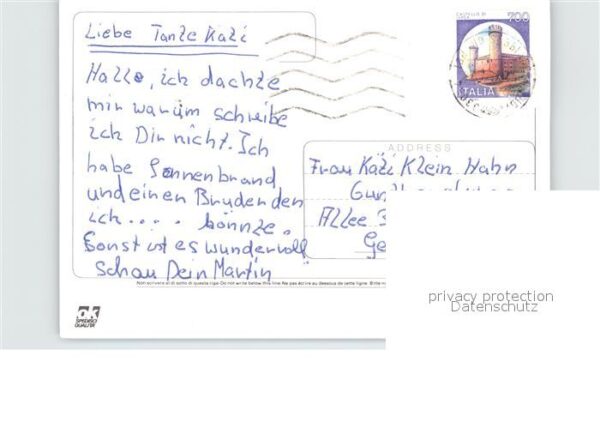 Liebe Tante Käti
Hallo, ich dachte
mir warum schreibe
ich Dir nicht. Ich
habe Sonnenbrand
und einen Bruder den
ich .... könnte.
Sonst ist es wundervoll
Schau Dein Martin
700
ITALIA
ADDRESS
Frau Käti Klein Hahn
Allee 3
Ge
Non scrivere al di sotto di questa riga Do not write below this line Ne pas écrire au dessous de cette ligne
OK
SPEDISCI
QUALITA'
privacy protection
Datenschutz